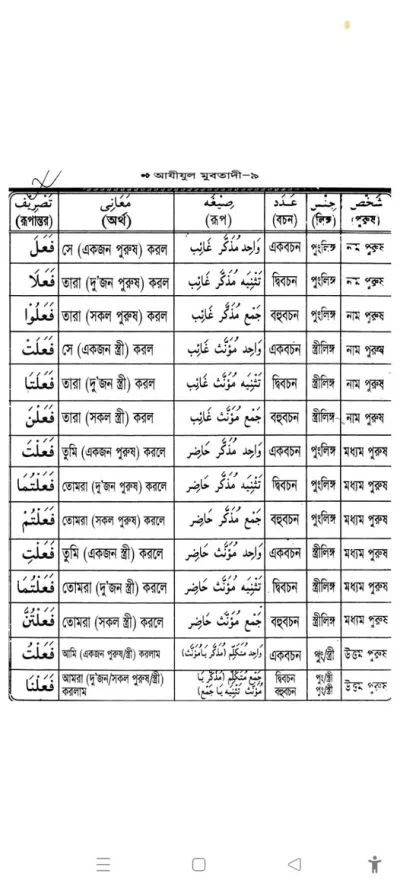 ➩ আযীযুল মুবতাদী-৯
تَصْرِيْف مَعَانِى صِيْغَه عَدَد جِنْس شَخْص
(রূপান্তর) (অর্থ) (রূপ) (বচন) (লিঙ্গ) (পুরুষ)
فَعَلَ সে (একজন পুরুষ) করল وَاحِد مُذَكَّر غَائِب একবচন পুংলিঙ্গ নাম পুরুষ
فَعَلَا তারা (দু'জন পুরুষ) করল تَثْنِيَه مُذَكَّر غَائِب দ্বিবচন পুংলিঙ্গ নাম পুরুষ
فَعَلُوْا তারা (সকল পুরুষ) করল جَمْع مُذَكَّر غَائِب বহুবচন পুংলিঙ্গ নাম পুরুষ
فَعَلَتْ সে (একজন স্ত্রী) করল وَاحِد مُؤَنَّث غَائِب একবচন স্ত্রীলিঙ্গ নাম পুরুষ
فَعَلَتَا তারা (দু'জন স্ত্রী) করল تَثْنِيَه مُؤَنَّث غَائِب দ্বিবচন স্ত্রীলিঙ্গ নাম পুরুষ
فَعَلْنَ তারা (সকল স্ত্রী) করল جَمْع مُؤَنَّث غَائِب বহুবচন স্ত্রীলিঙ্গ নাম পুরুষ
فَعَلْتَ তুমি (একজন পুরুষ) করলে وَاحِد مُذَكَّر حَاضِر একবচন পুংলিঙ্গ মধ্যম পুরুষ
فَعَلْتُمَا তোমরা (দু'জন পুরুষ) করলে تَثْنِيَه مُذَكَّر حَاضِر দ্বিবচন পুংলিঙ্গ মধ্যম পুরুষ
فَعَلْتُمْ তোমরা (সকল পুরুষ) করলে جَمْع مُذَكَّر حَاضِر বহুবচন পুংলিঙ্গ মধ্যম পুরুষ
فَعَلْتِ তুমি (একজন স্ত্রী) করলে وَاحِد مُؤَنَّث حَاضِر একবচন স্ত্রীলিঙ্গ মধ্যম পুরুষ
فَعَلْتُمَا তোমরা (দু'জন স্ত্রী) করলে تَثْنِيَه مُؤَنَّث حَاضِر দ্বিবচন স্ত্রীলিঙ্গ মধ্যম পুরুষ
فَعَلْتُنَّ তোমরা (সকল স্ত্রী) করলে جَمْع مُؤَنَّث حَاضِر বহুবচন স্ত্রীলিঙ্গ মধ্যম পুরুষ
فَعَلْتُ আমি (একজন পুরুষ/স্ত্রী) করলাম وَاحِد مُتَكَلِّم (مُذَكَّر يَا مُؤَنَّث) একবচন পুং/স্ত্রী উত্তম পুরুষ
فَعَلْنَا আমরা (দু'জন/সকল পুরুষ/স্ত্রী) جَمْع مُتَكَلِّم (مُذَكَّر يَا দ্বিবচন পুং/স্ত্রী উত্তম পুরুষ
করলাম مُؤَنَّث تَثْنِيَه يَا جَمْع) বহুবচন পুং/স্ত্রী